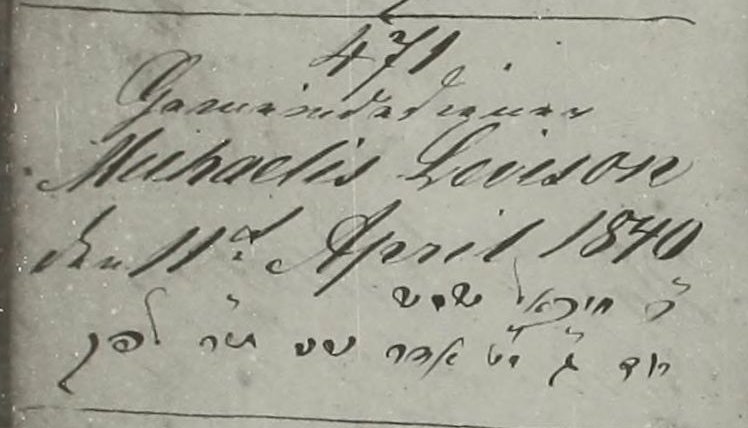 471
Gemeindediener
Michaelis Levison
den 11t April 1840
ר' מיכאל שמש
יום ג' י"ט אדר שני ת"ר לפק